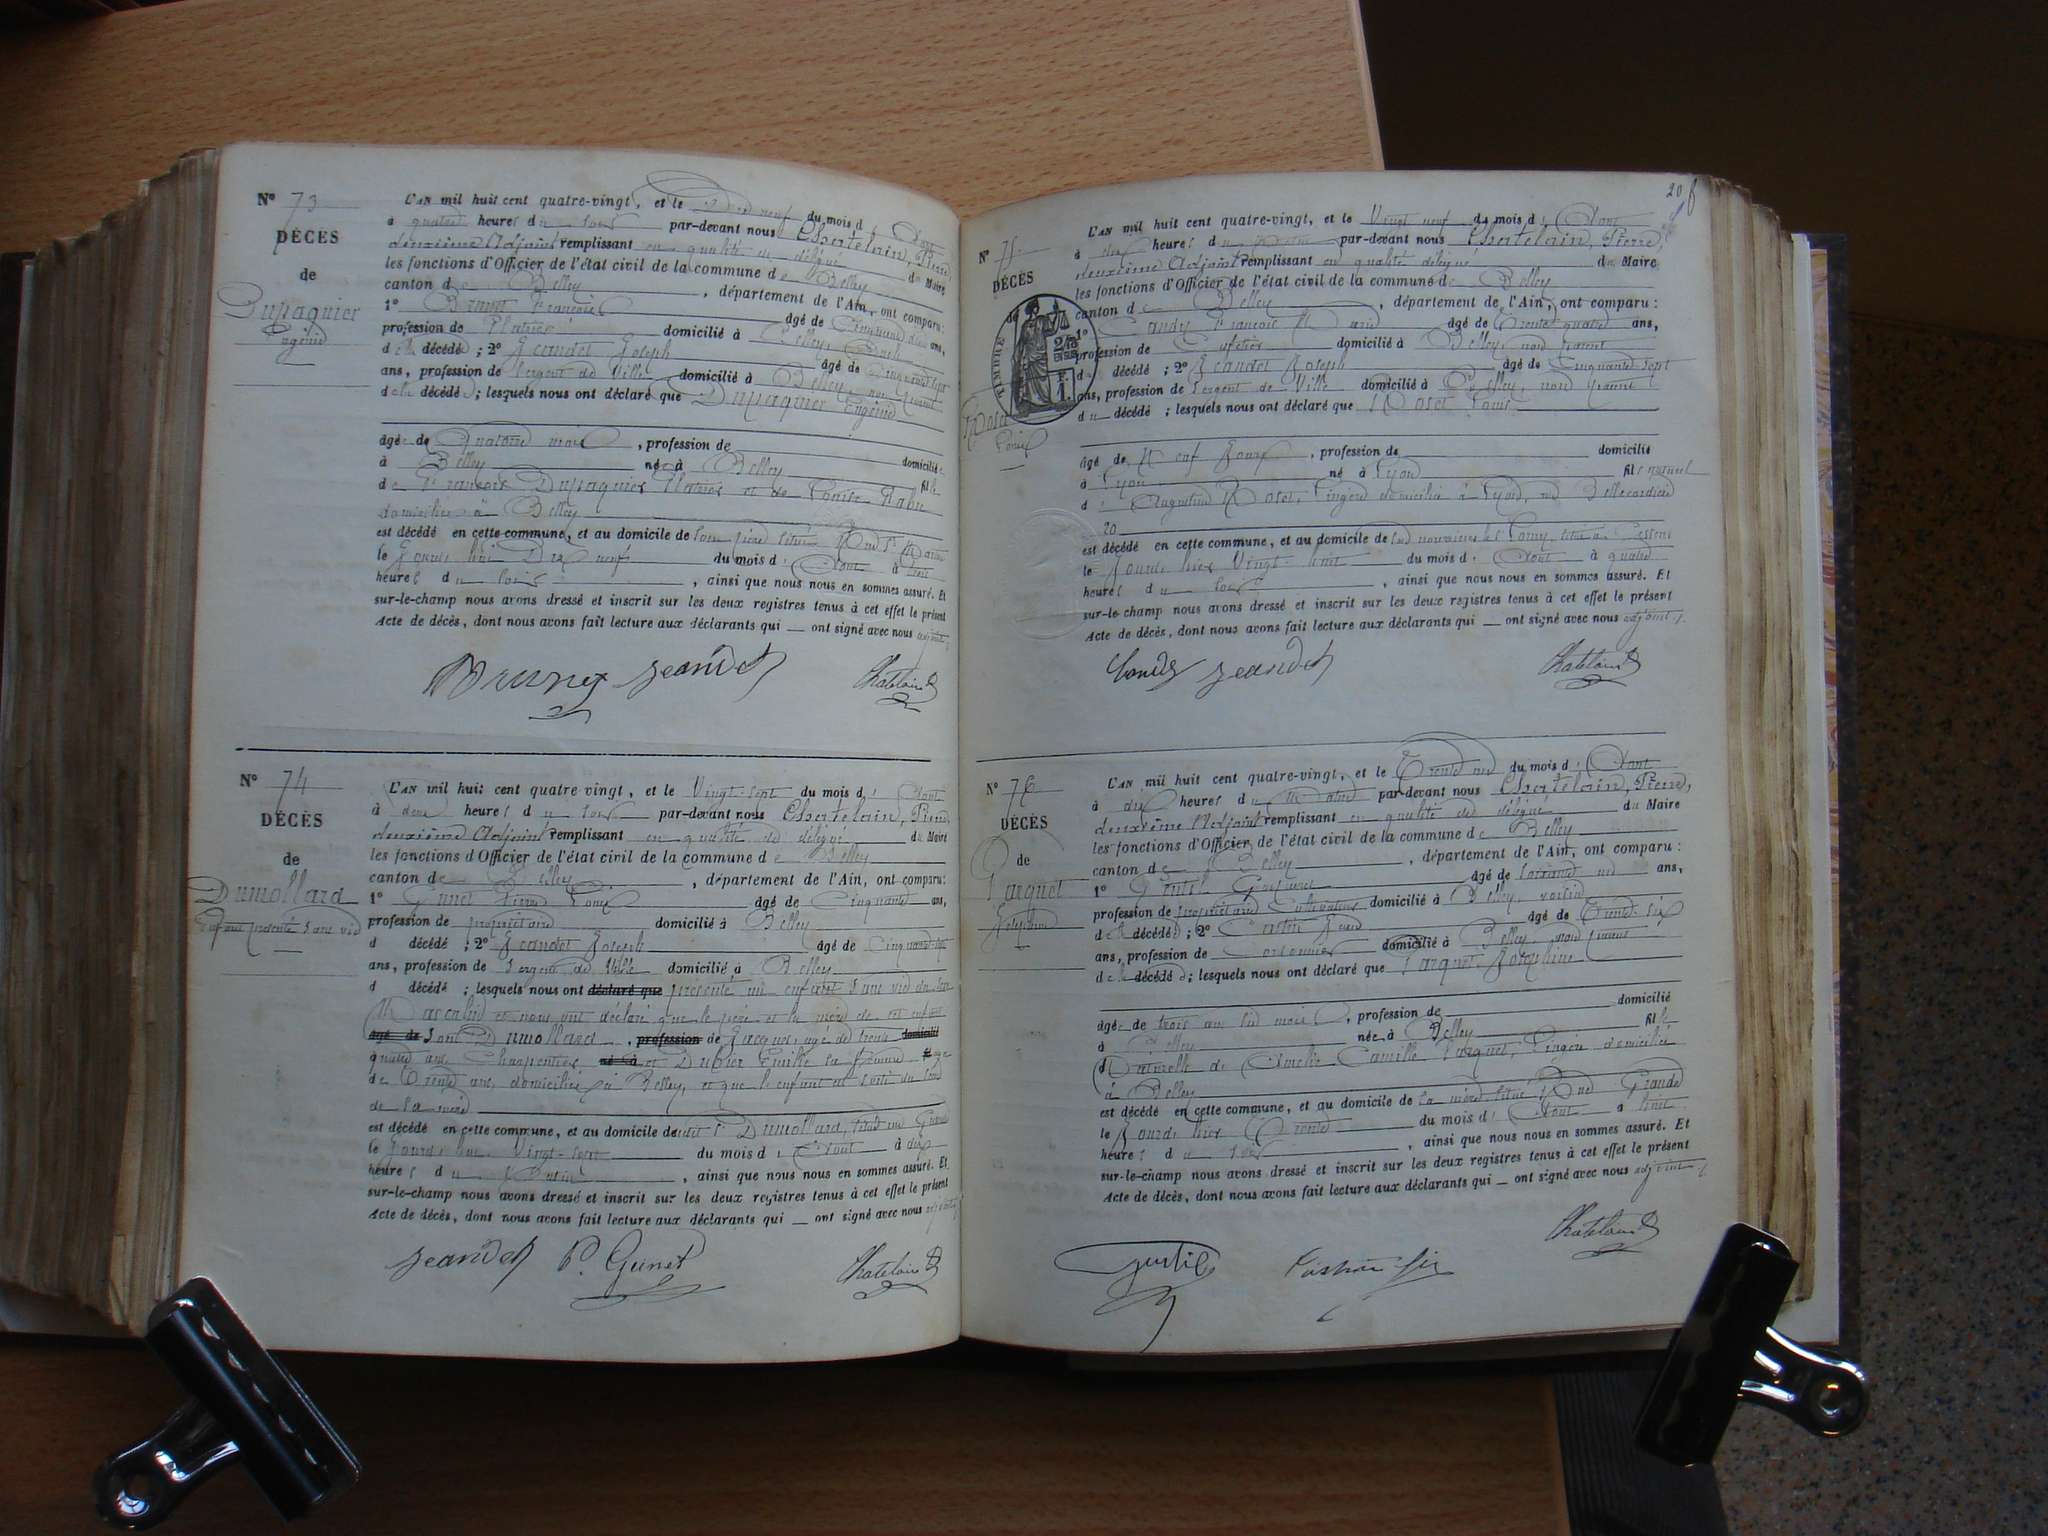 N° 73
DÉCÈS
de
Dupaquier
Eugénie
L'AN mil huit cent quatre-vingt, et le Dix neuf du mois d' Août
à quatre heures du soir par-devant nous Chatelain, Pierre
deuxième Adjoint remplissant en qualité de délégué du Maire
les fonctions d'Officier de l'état civil de la commune de Belley
canton de Belley, département de l'Ain, ont comparu :
1° François âgé de ans,
profession de Platrier domicilié à Belley,
de la décédée ; 2° Jeandet Joseph âgé de Cinquante sept
ans, profession de Sergent de Ville domicilié à Belley, non parent
de la décédée ; lesquels nous ont déclaré que Dupaquier Eugénie
âgée de Quatorze mois, profession de domiciliée
à Belley née à Belley fille
de François Dupaquier Platrier et de Louise
domiciliés à Belley
est décédé en cette commune, et au domicile de son père situé Rue St
le Jourd'hui Dix neuf du mois d' Août à trois
heures du soir, ainsi que nous nous en sommes assuré. Et
sur-le-champ nous avons dressé et inscrit sur les deux registres tenus à cet effet le présent
Acte de décès, dont nous avons fait lecture aux déclarants qui — ont signé avec nous adjoint
Jeandet Chatelain
N° 74
DÉCÈS
de
Dumollard
Enfant présenté sans vie
L'AN mil huit cent quatre-vingt, et le Vingt-sept du mois d' Août
à deux heures du soir par-devant nous Chatelain, Pierre,
deuxième Adjoint remplissant en qualité de délégué du Maire
les fonctions d'Officier de l'état civil de la commune de Belley
canton de Belley, département de l'Ain, ont comparu :
1° Gunet Pierre Louis âgé de Cinquante ans,
profession de propriétaire domicilié à Belley
d décédé ; 2° Jeandet Joseph âgé de Cinquante-sept
ans, profession de Sergent de Ville domicilié à Belley
d décédé ; lesquels nous ont déclaré que présenté un enfant sans vie du sexe
Masculin et nous ont déclaré que le père et la mère de cet enfant
âgé de sont Dumollard, profession de Jacques, âgé de trente domicilié
quatre ans, Charpentier né à et Dubier Emilie sa femme âgée
de Trente ans, domiciliés à Belley, et que le enfant est sorti du sein
de sa mère
est décédé en cette commune, et au domicile dudit Sr Dumollard, situé rue Grande
le Jourd'hui Vingt-sept du mois d' Août à dix
heures du Matin, ainsi que nous nous en sommes assuré. Et
sur-le-champ nous avons dressé et inscrit sur les deux registres tenus à cet effet le présent
Acte de décès, dont nous avons fait lecture aux déclarants qui — ont signé avec nous adjoint
Jeandet P. Gunet Chatelain
20
N° 75
DÉCÈS
de
TIMBRE
Louis
L'AN mil huit cent quatre-vingt, et le Vingt neuf du mois d' Août
à dix heures du Matin par-devant nous Chatelain, Pierre,
deuxième Adjoint remplissant en qualité délégué du Maire
les fonctions d'Officier de l'état civil de la commune de Belley
canton de Belley, département de l'Ain, ont comparu :
1° François Marie âgé de Trente quatre ans,
profession de Cafetier domicilié à Belley, non parent
du décédé ; 2° Jeandet Joseph âgé de Cinquante sept
ans, profession de Sergent de Ville domicilié à Belley, non parent
du décédé ; lesquels nous ont déclaré que Louis
âgé de Neuf Jours, profession de domicilié
à Lyon né à Lyon fils naturel
d' Augustine Lingère domiciliée à Lyon, rue Bellecordière
20
est décédé en cette commune, et au domicile de sa nourrice situé à
le Jourd'hier Vingt-huit du mois d' Août à quatre
heures du soir, ainsi que nous nous en sommes assuré. Et
sur-le-champ nous avons dressé et inscrit sur les deux registres tenus à cet effet le présent
Acte de décès, dont nous avons fait lecture aux déclarants qui — ont signé avec nous adjoint
Jeandet Chatelain
N° 76
DÉCÈS
de
Parquet
Joséphine
L'AN mil huit cent quatre-vingt, et le Trente un du mois d' Août
à dix heures du Matin par-devant nous Chatelain, Pierre,
deuxième Adjoint remplissant en qualité de délégué du Maire
les fonctions d'Officier de l'état civil de la commune de Belley
canton de Belley, département de l'Ain, ont comparu :
1° âgé de soixante un ans,
profession de propriétaire Cultivateur domicilié à Belley, voisin
de la décédée ; 2° âgé de Trente-six
ans, profession de Cordonnier domicilié à Belley, non parent
de la décédée ; lesquels nous ont déclaré que Parquet Joséphine
âgée de trois ans six mois, profession de domicilié
à Belley née à Belley fille
Naturelle de Amélie Camille Parquet, Lingère domiciliée
à Belley
est décédé en cette commune, et au domicile de sa mère situé Rue Grande
le Jourd'hier Trente du mois d' Août à huit
heures du soir, ainsi que nous nous en sommes assuré. Et
sur-le-champ nous avons dressé et inscrit sur les deux registres tenus à cet effet le présent
Acte de décès, dont nous avons fait lecture aux déclarants qui — ont signé avec nous adjoint
Chatelain